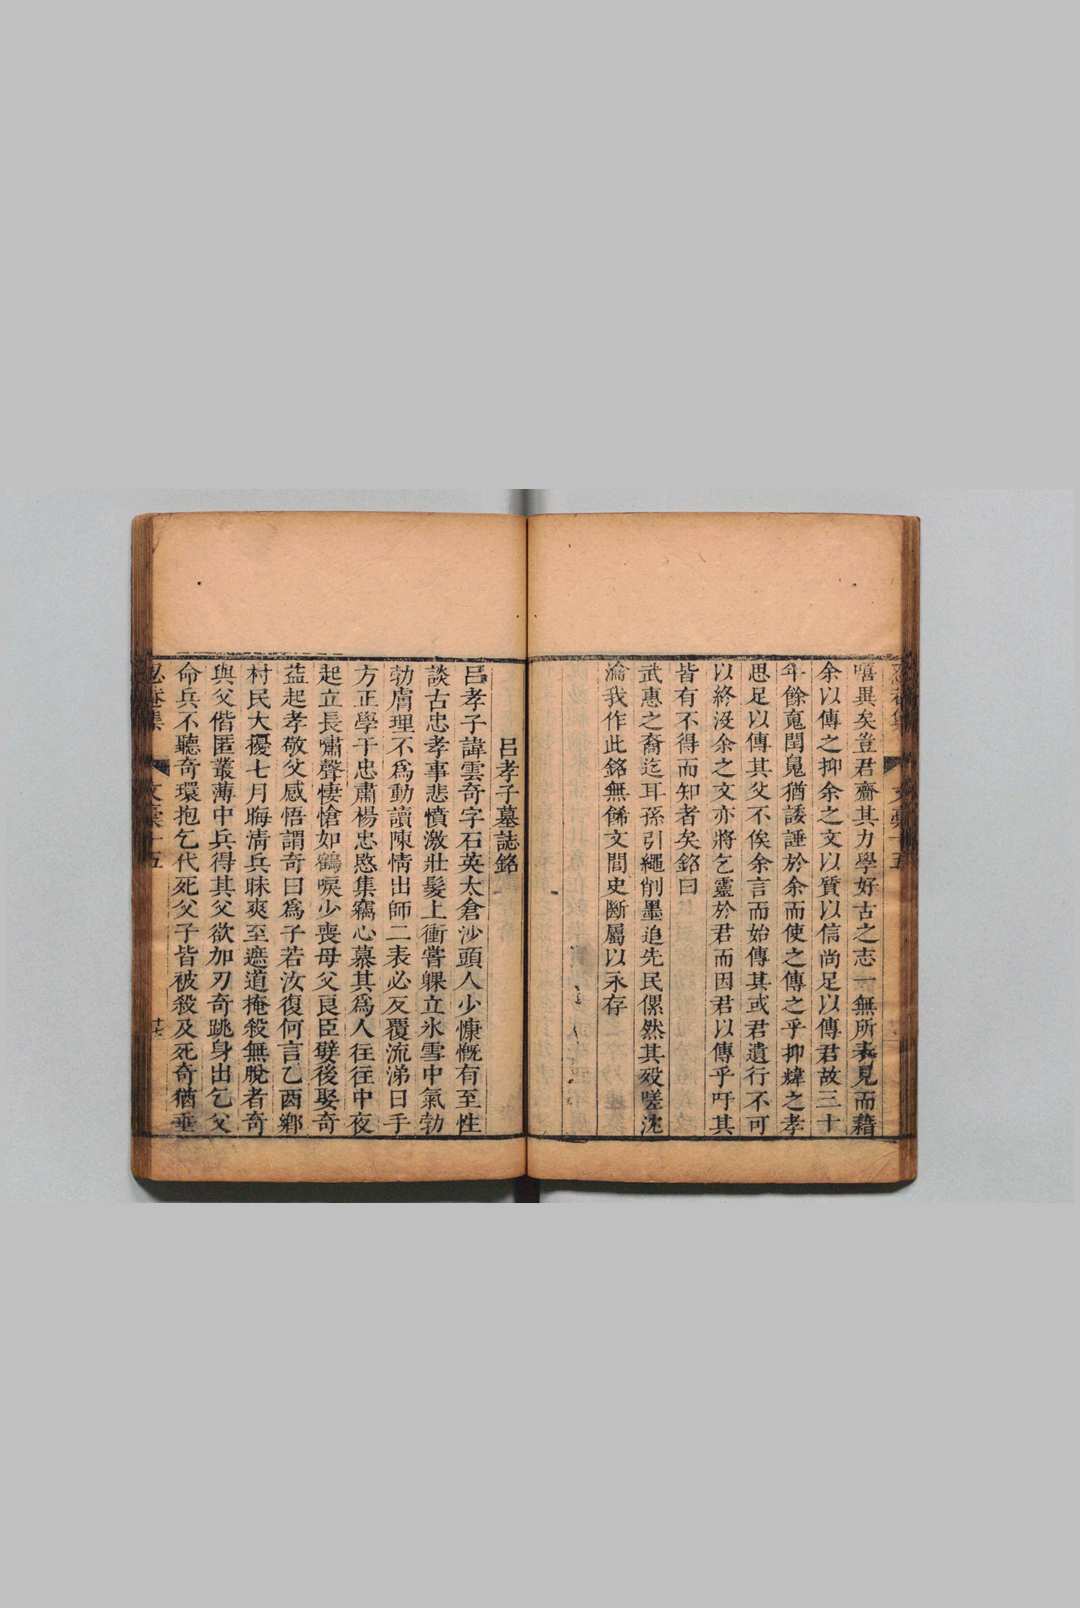 嘻異矣豈君齋其力學好古之志一無所表見而藉
余以傳之抑余之文以質以信尚足以傳君故三十
年餘寃閏𠒋猶諉諈於余而使之傳之乎抑煒之孝
思足以傳其父不俟余言而始傳其或君遺行不可
以終沒余之文亦將乞靈於君而因君以傳乎吁其
皆有不得而知者矣銘曰
武惠之裔迄耳孫引繩削墨追先民傫然其歿嗟沈
淪我作此銘無餙文閭史斷屬以永存
呂孝子墓誌銘
呂孝子諱雲奇字石英太倉沙頭人少慷慨有至性
談古忠孝事悲憤激壯髮上衝嘗躶立氷雪中氣勃
勃膚理不爲動讀陳情出師二表必反覆流涕曰手
方正學于忠肅楊忠愍集竊心慕其爲人往往中夜
起立長嘯聲悽愴如鶴唳少喪母父良臣嬖後娶奇
益起孝敬父感悟謂奇曰爲子若汝復何言乙酉鄉
村民大擾七月晦淸兵昧爽至遮道掩殺無脫者奇
與父偕匿叢薄中兵得其父欲加刃奇跳身出乞父
命兵不聽奇環抱乞代死父子皆被殺及死奇猶垂
忍菴集
文稾十五